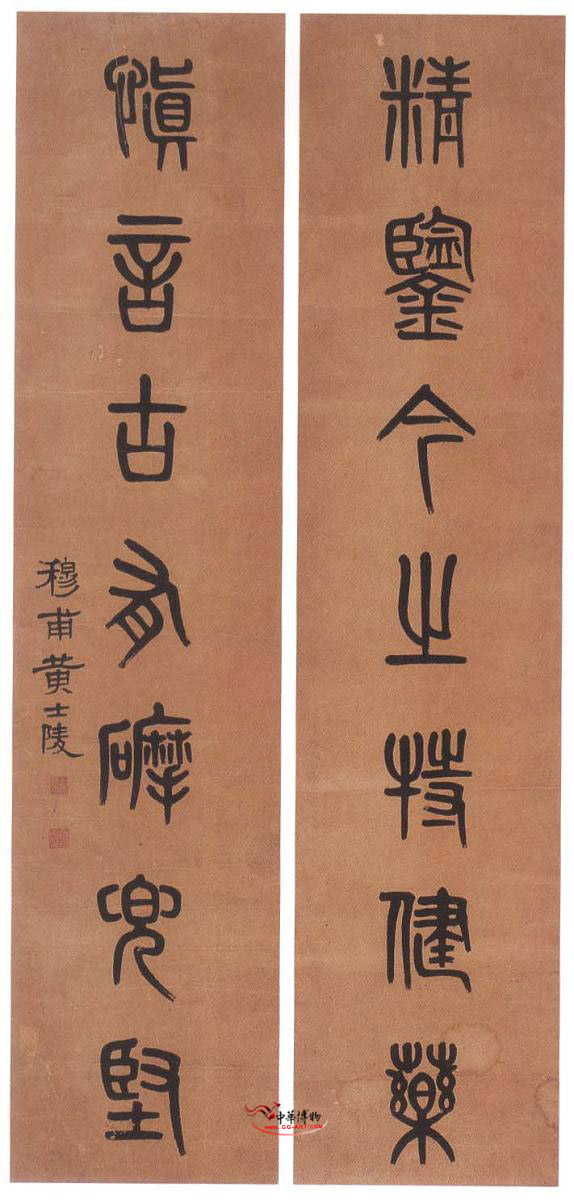 精鑒今之特健藥
慎言古有磨兜堅
穆甫黄士陵
中華博物
WWW.GG-ART.COM